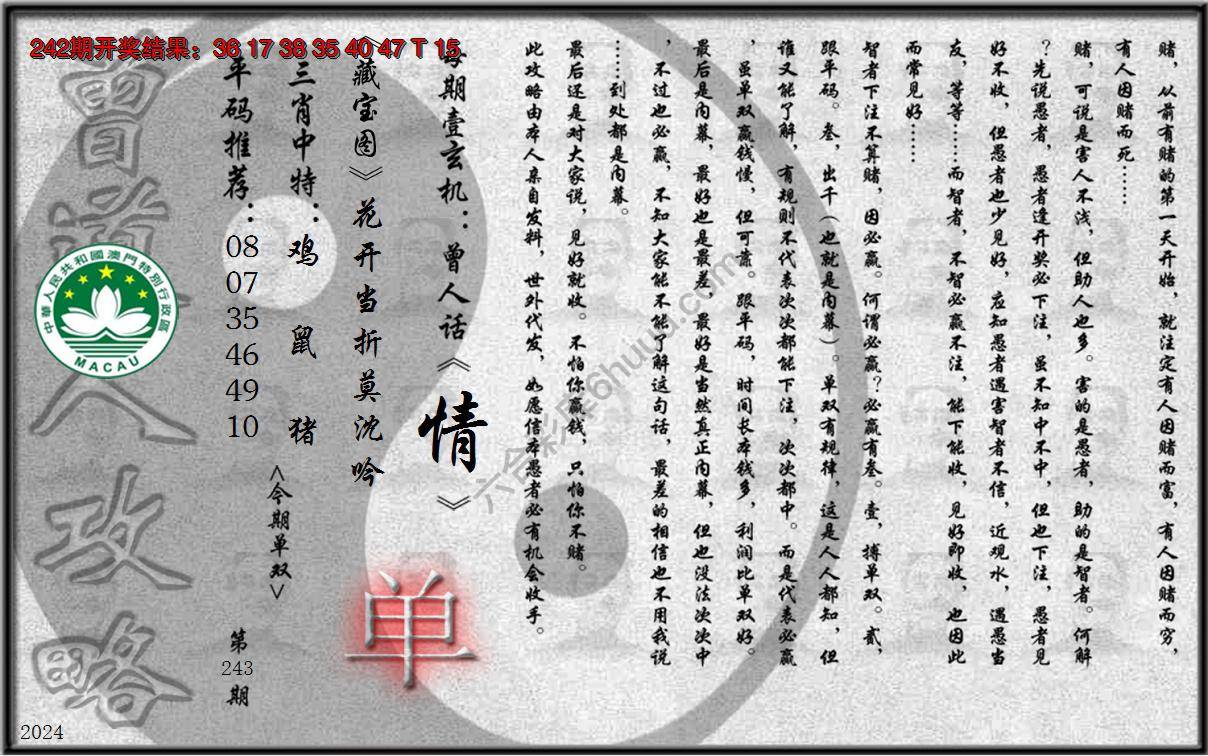 242期开奖结果：36 17 38 35 40 47 T 15
赌，从前有赌的第一天开始，就注定有人因赌而富，有人因赌而穷，
有人因赌而死……
赌，可说是害人不浅，但助人也多。害的是愚者，助的是智者。何解
？先说愚者，愚者逢开奖必下注，虽不知中不中，但也下注，愚者见
好不收，但愚者也少见好，应知愚者遇害智者不信，近观水，遇愚当
友，等等……而智者，不智必赢不注，能下能收，见好即收，也因此
而常见好……
智者下注不算赌，因必赢。何谓必赢？必赢有叁。壹，搏单双。贰，
跟平码。叁，出千（也就是内幕）。单双有规律，这是人人都知，但
谁又能了解，有规则不代表次次都能下注，次次都中。而是代表必赢
，虽单双赢钱慢，但可靠。跟平码，时间长本钱多，利润比单双好。
最后是内幕，最好也是最差，最好是当然真正内幕，但也没法次次中
，不过也必赢，不知大家能不能了解这句话，最差的相信也不用我说
……到处都是内幕。
最后还是对大家说，见好就收。不怕你赢钱，只怕你不赌。
此攻略由本人亲自发料，世外代发，如愿信本愚者必有机会收手。
每期壹玄机：曾人话《情》
《藏宝图》花开当折莫沈吟
三肖中特：鸡 鼠 猪
平码推荐：08 07 35 46 49 10
<今期单双>
单
第243期
曾道人攻略
中華人民共和國澳門特別行政區
MACAU
六合彩库6huuu.com
2024